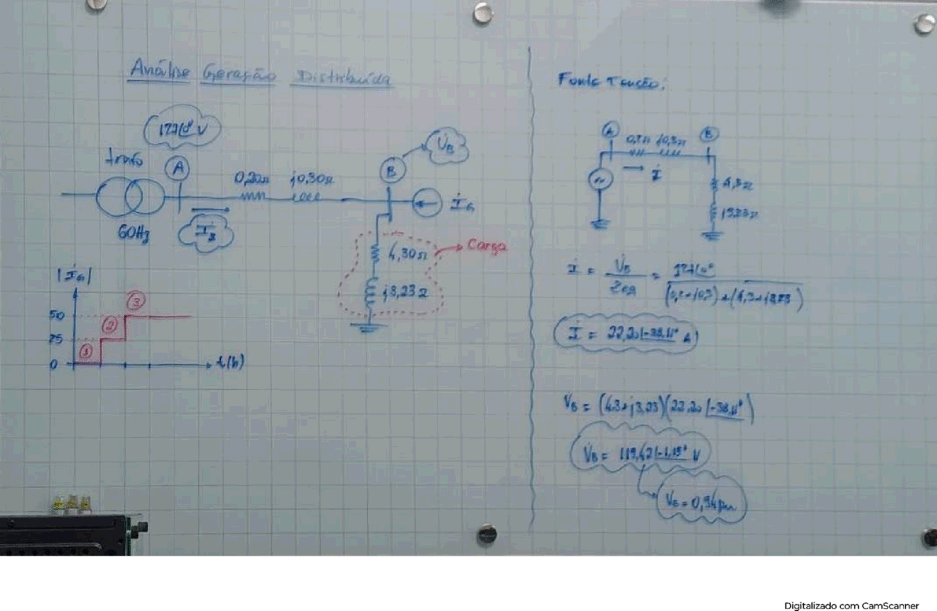 Análise Geração Distribuída
127∠0° V
trafo
A
0,20Ω j0,30Ω
B
V̇B
60Hz
İs
İG
4,30Ω
Carga
j3,23Ω
|İG|
50
25
0
①
②
③
t(h)
Fonte Tensão:
A
B
İ
4,3Ω
İ = / = 127∠0°
İ = 22,20∠-38,11° A
VB = (4,3+j3,23)(22,20∠-38,11°)
V̇B = 119,42∠-1,19° V
VB = 0,94pu
Digitalizado com CamScanner